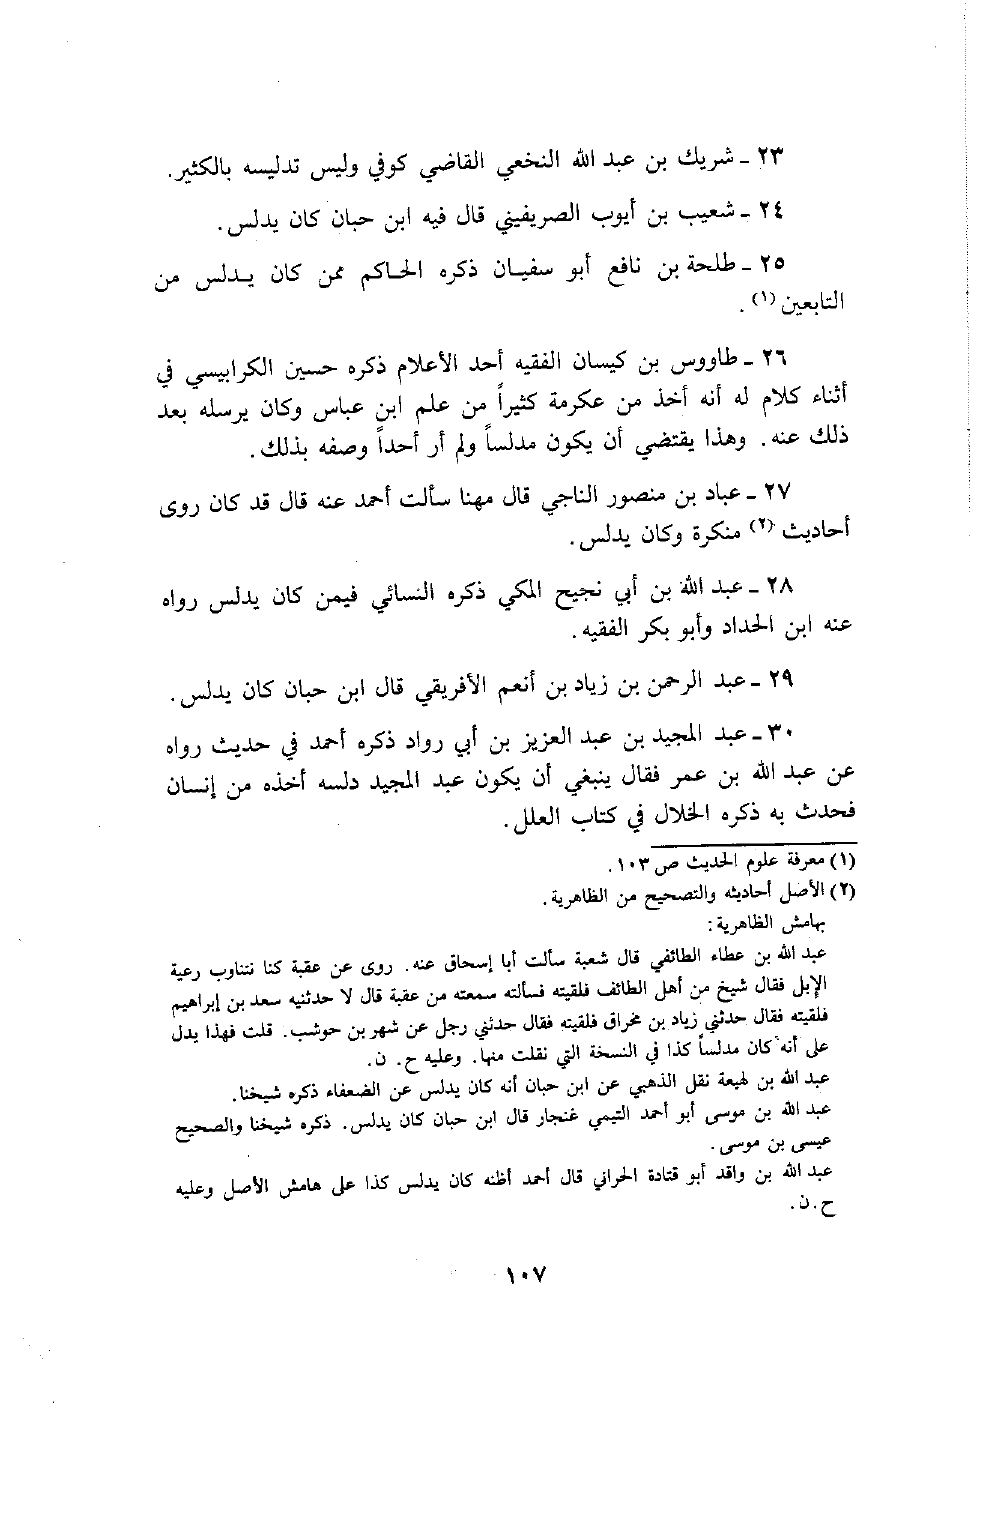 ٢٣ - شريك بن عبد الله النخعي القاضي كوفي وليس تدليسه بالكثير.
٢٤ - شعيب بن أيوب الصريفيني قال فيه ابن حبان كان يدلس.
٢٥ - طلحة بن نافع أبو سفيان ذكره الحاكم ممن كان يدلس من
التابعين (١) .
٢٦ - طاووس بن كيسان الفقيه أحد الأعلام ذكره حسين الكرابيسي في
أثناء كلام له أنه أخذ من عكرمة كثيراً من علم ابن عباس وكان يرسله بعد
ذلك عنه. وهذا يقتضي أن يكون مدلساً ولم أر أحداً وصفه بذلك.
٢٧ - عباد بن منصور الناجي قال مهنا سألت أحمد عنه قال قد كان روى
أحاديث (٢) منكرة وكان يدلس.
٢٨ - عبد الله بن أبي نجيح المكي ذكره النسائي فيمن كان يدلس رواه
عنه ابن الحداد وأبو بكر الفقيه.
٢٩ - عبد الرحمن بن زياد بن أنعم الأفريقي قال ابن حبان كان يدلس.
٣٠ - عبد المجيد بن عبد العزيز بن أبي رواد ذكره أحمد في حديث رواه
عن عبد الله بن عمر فقال ينبغي أن يكون عبد المجيد دلسه أخذه من إنسان
فحدث به ذكره الخلال في كتاب العلل.
(١) معرفة علوم الحديث ص ١٠٣.
(٢) الأصل أحاديثه والتصحيح من الظاهرية.
بهامش الظاهرية:
عبد الله بن عطاء الطائفي قال شعبة سألت أبا إسحاق عنه. روى عن عقبة كنا نتناوب رعية
الإبل فقال شيخ من أهل الطائف فلقيته فسألته سمعته من عقبة قال لا حدثنيه سعد بن إبراهيم
فلقيته فقال حدثني زياد بن مخراق فلقيته فقال حدثني رجل عن شهر بن حوشب. قلت فهذا يدل
على أنه كان مدلساً كذا في النسخة التي نقلت منها. وعليه ح. ن.
عبد الله بن لهيعة نقل الذهبي عن ابن حبان أنه كان يدلس عن الضعفاء ذكره شيخنا.
عبد الله بن موسى أبو أحمد التيمي غنجار قال ابن حبان كان يدلس. ذكره شيخنا والصحيح
عيسى بن موسى.
عبد الله بن واقد أبو قتادة الحراني قال أحمد أظنه كان يدلس كذا على هامش الأصل وعليه
ح. ن.
١٠٧